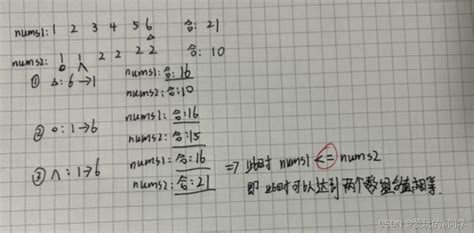 nums1: 1 2 3 4 5 6 合: 21
△
nums2: 1 1 2 2 2 2 合: 10
○ ∧
① △: 6→1 nums1: 合: 16
nums2: 合: 10
② ○: 1→6 nums1: 合: 16
nums2: 合: 15
③ ∧: 1→6 nums1: 合: 16
nums2: 合: 21
=> 此时 nums1 <= nums2
即 此时可以达到两个数组合值相等.
CSDN @爱玩的y同学